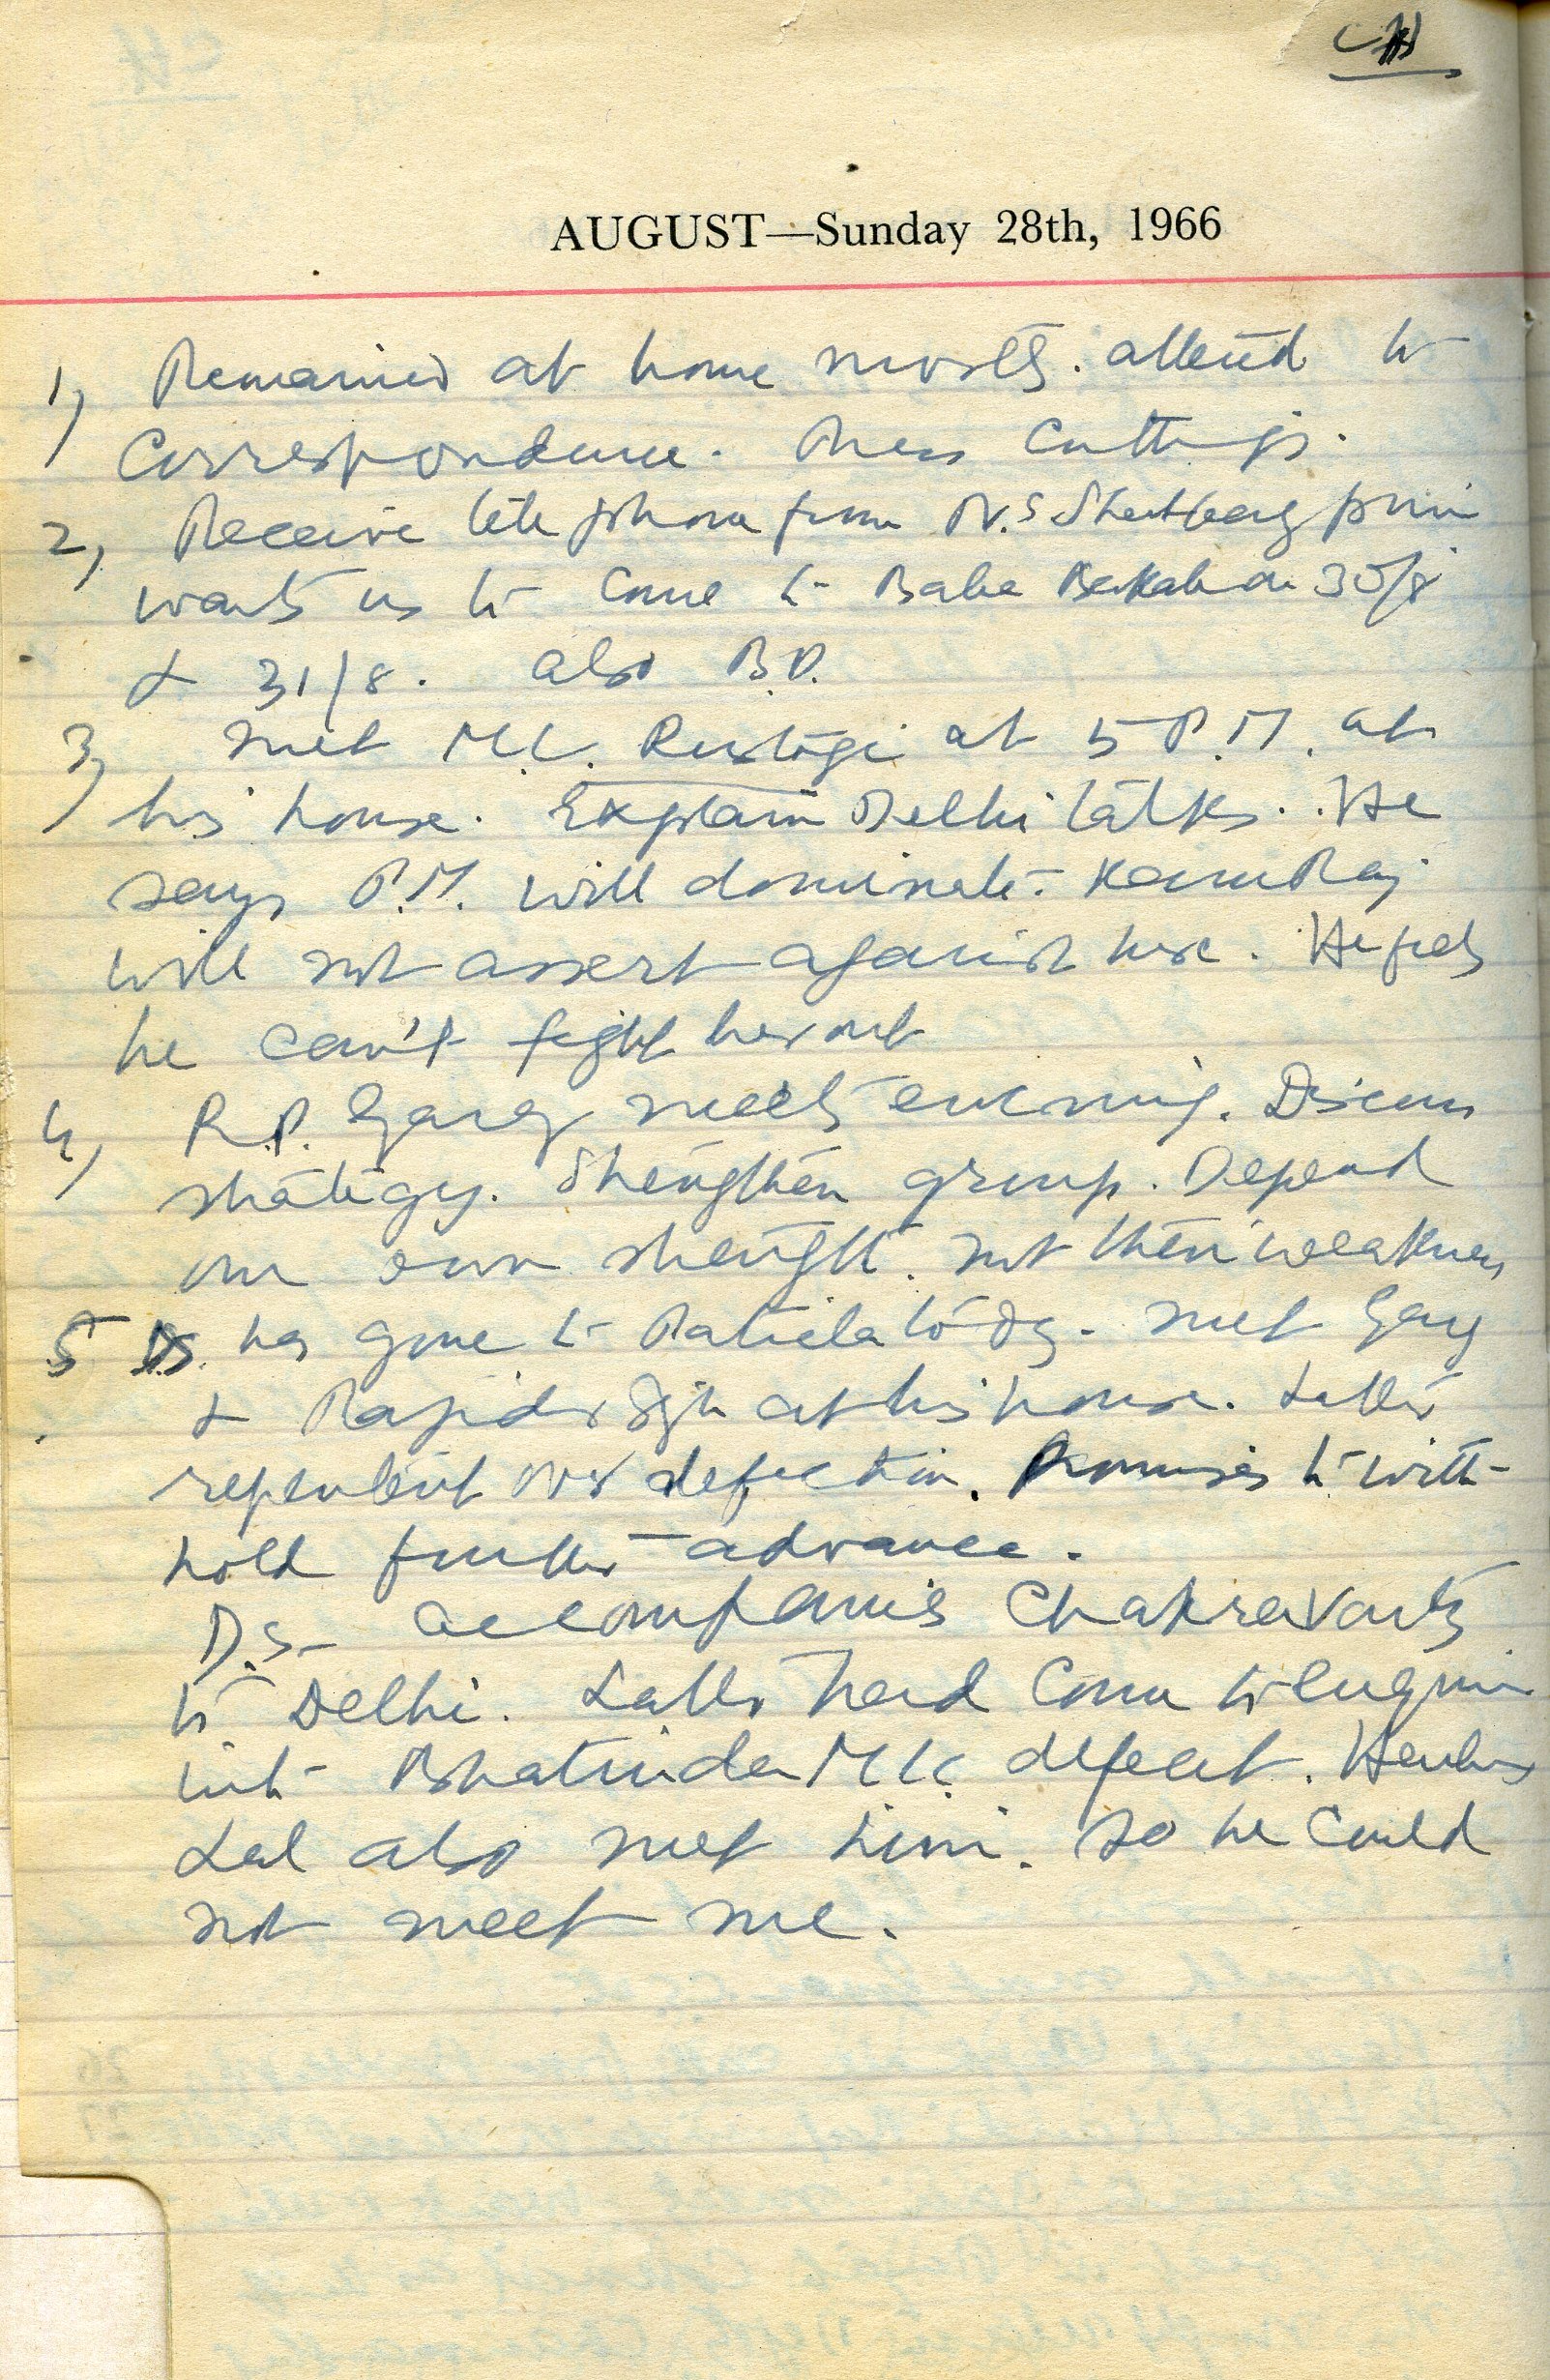 CH
AUGUST—Sunday 28th, 1966
1) Remained at home mostly. attend to
Correspondence. Press Cuttings.
2) Receive telephone from
wants us to come to Baba Bakala on 30/8
& 31/8. also B.D.
3) met M.L. Rustogi at 5 P.M. at
his house. Explain Delhi talks. He
says P.M. will dominate. KamRaj
will not assert against her. He feels
he can't fight her out
4) R.P. Garg meets evening. Discuss
strategy. Strengthen group. Depend
on own strength. not their weakness
5 D.S. has gone to Patiala to-dy. met Garg
& Rapinder Sgh at his house. Latter
repentent over defection. Promises to with-
hold further advance.
D.S. accompanies Chakravarty
to Delhi. Latter had Come to enquire
into Bhatinda M.C. defeat.
Lal also met him. So he Could
not meet me.